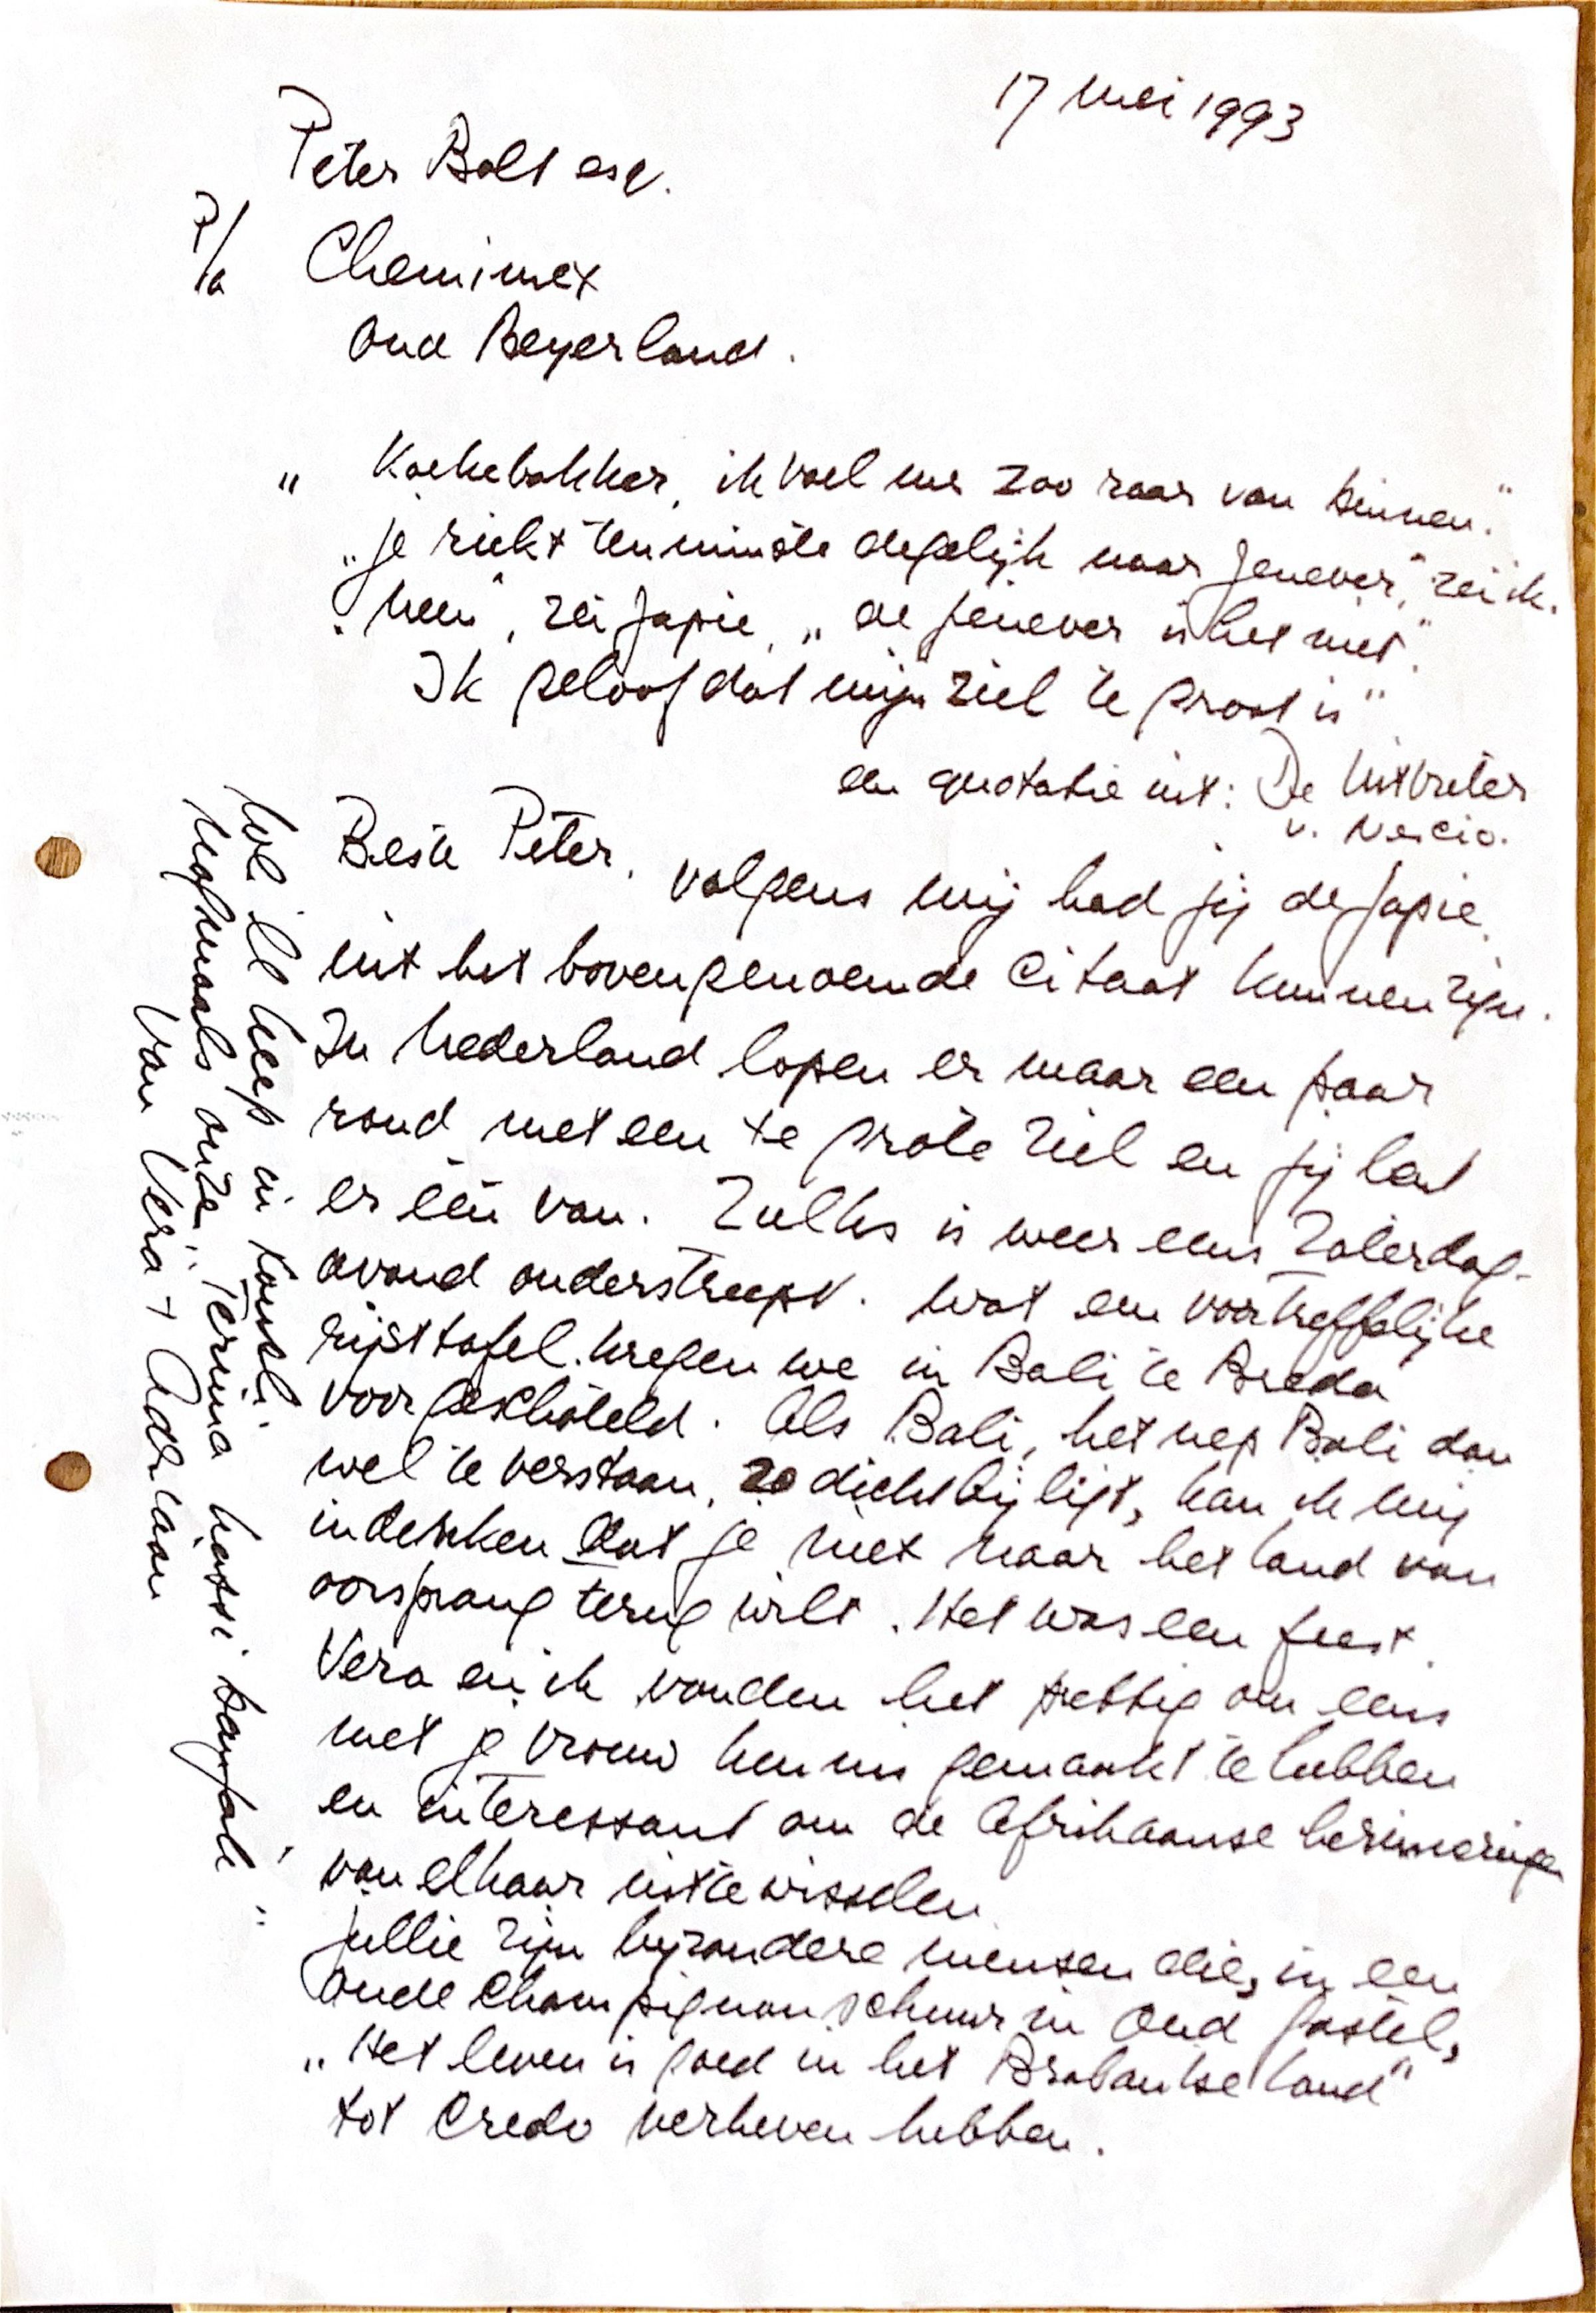 17 mei 1993
Peter Bolt esq.
P/a Chemimex
Oud Beyerland.
„ Koekebakker, ik voel me zoo raar van binnen."
„Je riekt tenminste degelijk naar jenever," zei ik.
„Neen", zei Japie, „de jenever is het niet".
Ik geloof dat mijn ziel te groot is"
een quotatie uit: De Uitvreter
v. Nescio.
Beste Peter, volgens mij had jij de Japie
uit het bovengenoemde citaat kunnen zijn.
In Nederland lopen er maar een paar
rond met een te grote ziel en jij bent
er één van. Zulks is weer eens Zaterdag-
avond onderstreept. Wat een voortreffelijke
rijsttafel kregen we in Bali te Breda
voorgeschoteld. Als Bali, het nep Bali dan
wel te verstaan, zo dichtbij ligt, kan ik mij
indenken dat je niet naar het land van
oorsprong terug wilt. Het was een feest.
Vera en ik vonden het prettig om eens
met je vrouw kennis gemaakt te hebben
en interessant om de Afrikaanse herinneringen
van elkaar uit te wisselen
Jullie zijn bijzondere mensen die, in een
oude Champignonschuur in Oud Gastel,
„Het leven is goed in het Brabantse land"
tot Credo verheven hebben.
in
Nogmaals onze „Terima kassi banjak"
van Vera + Adriaan